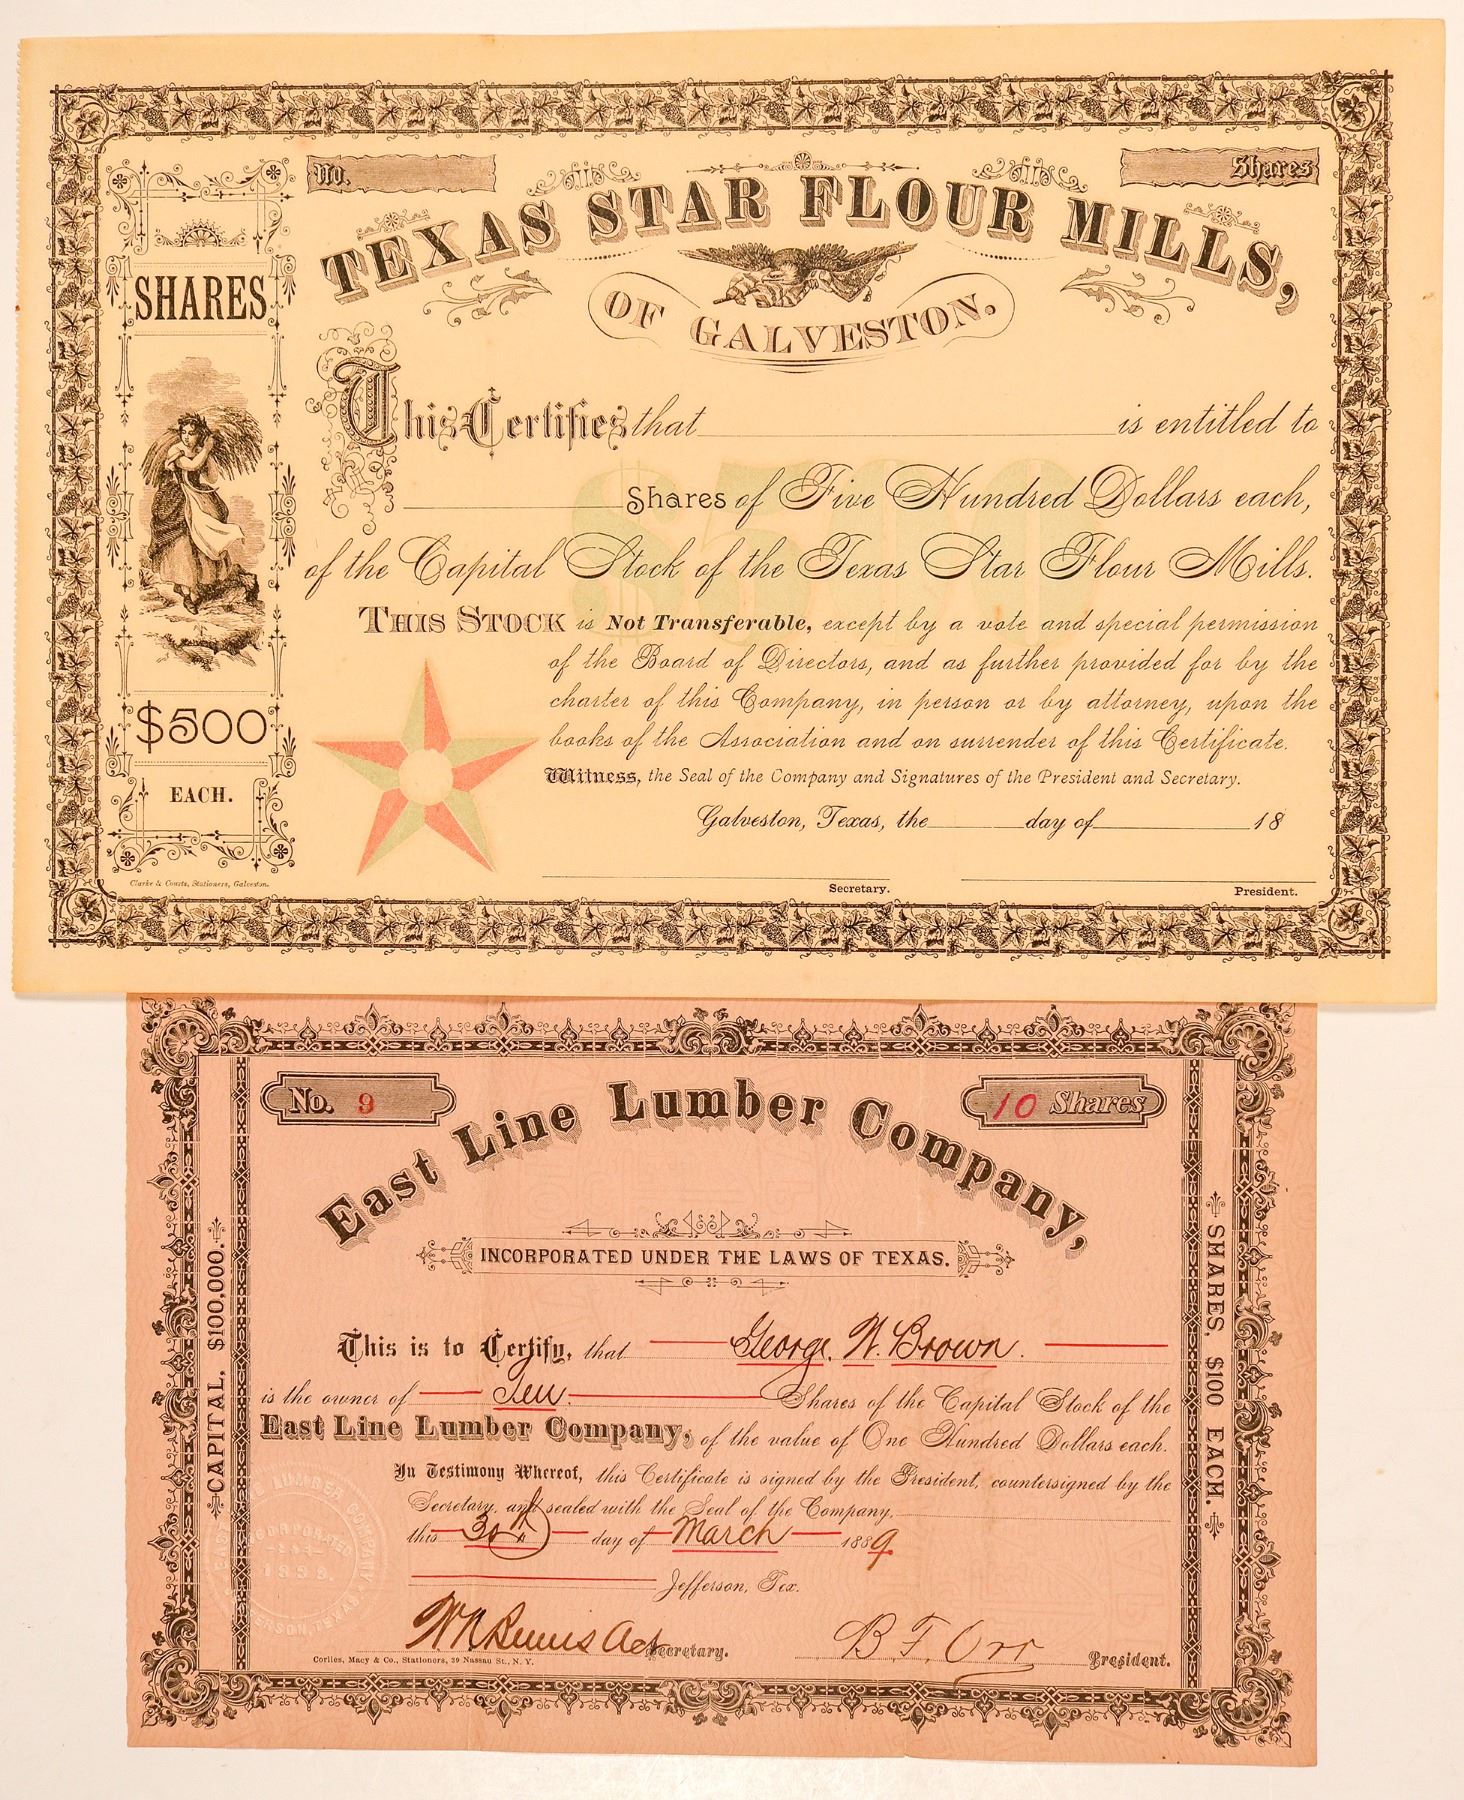 No.
Shares
TEXAS STAR FLOUR MILLS,
OF GALVESTON.
SHARES
$500
EACH.
This Certifies that is entitled to
Shares of Five Hundred Dollars each,
of the Capital Stock of the Texas Star Flour Mills.
$500
THIS STOCK is Not Transferable, except by a vote and special permission
of the Board of Directors, and as further provided for by the
charter of this Company, in person or by attorney, upon the
books of the Association and on surrender of this Certificate.
Witness, the Seal of the Company and Signatures of the President and Secretary.
Galveston, Texas, the day of 18
Secretary. President.
Clarke & Courts, Stationers, Galveston.
No. 9
10 Shares
East Line Lumber Company,
INCORPORATED UNDER THE LAWS OF TEXAS.
CAPITAL, $100,000.
SHARES, $100 EACH.
This is to Certify, that George W. Brown.
is the owner of Ten Shares of the Capital Stock of the
East Line Lumber Company, of the value of One Hundred Dollars each.
In Testimony Whereof, this Certificate is signed by the President, countersigned by the
Secretary, and sealed with the Seal of the Company,
this 30th day of March 1889
Jefferson, Tex.
Secretary.
B. F. Orr President.
Corlies, Macy & Co., Stationers, 39 Nassau St., N. Y.
LUMBER COMPANY
INCORPORATED
TEXAS